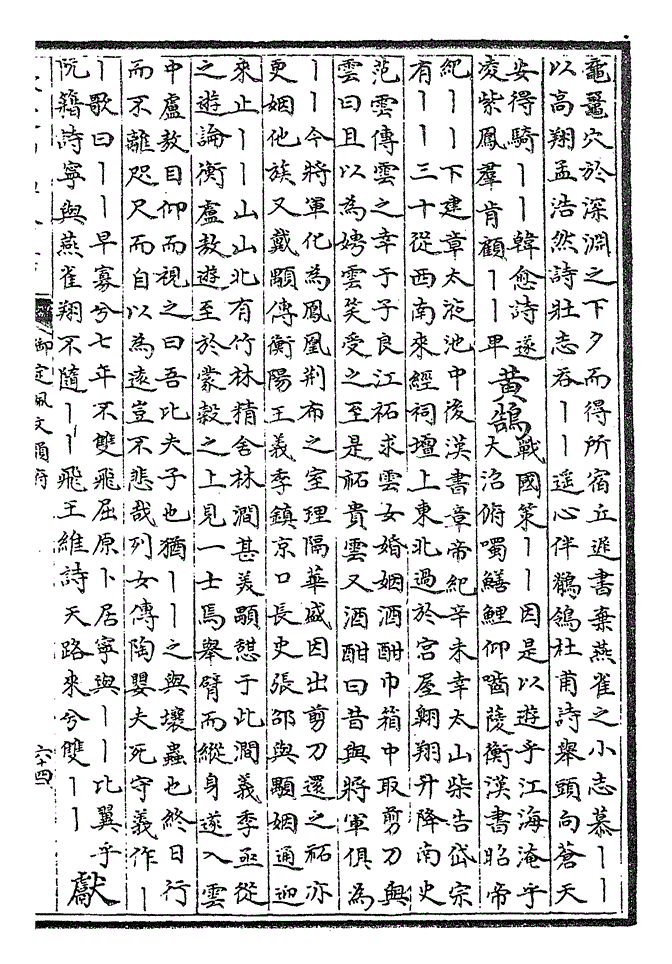 黿鼉穴於深淵之下夕而得所宿丘遲書棄燕雀之小志慕丨丨
以高翔孟浩然詩壯志吞丨丨遥心伴鶺鴒杜甫詩舉頭向蒼天
安得騎丨丨韓愈詩遂
凌紫鳳羣肯顧丨丨卑
黃鵠
戰國策丨丨因是以遊乎江海淹乎
大沼俯噣鱔鯉仰嚙䔖衡漢書昭帝
紀丨丨下建章太液池中後漢書章帝紀辛未幸太山柴告岱宗
有丨丨三十從西南來經祠壇上東北過於宮屋翱翔升降南史
范雲傳雲之幸于子良江祏求雲女婚姻酒酣巾箱中取剪刀與
雲曰且以為娉雲笑受之至是祏貴雲又酒酣曰昔與將軍俱為
丨丨今將軍化為鳳凰荆布之室理隔華盛因出剪刀還之祏亦
更姻他族又戴顒傳衡陽王義季鎮京口長史張邵與顒姻通迎
來止丨丨山山北有竹林精舍林澗甚美顒憇于此澗義季亟從
之遊論衡盧敖遊至於蒙榖之上見一士焉舉臂而縱身遂入雲
中盧敖目仰而視之曰吾比夫子也猶丨丨之與壤蟲也終日行
而不離咫尺而自以為遠豈不悲哉列女傳陶嬰夫死守義作丨
丨歌曰丨丨早寡兮七年不雙飛屈原卜居寧與丨丨比翼乎
阮籍詩寧與燕雀翔不隨丨丨飛王維詩天路來兮雙丨丨
獻
御定佩文韻府
六十四